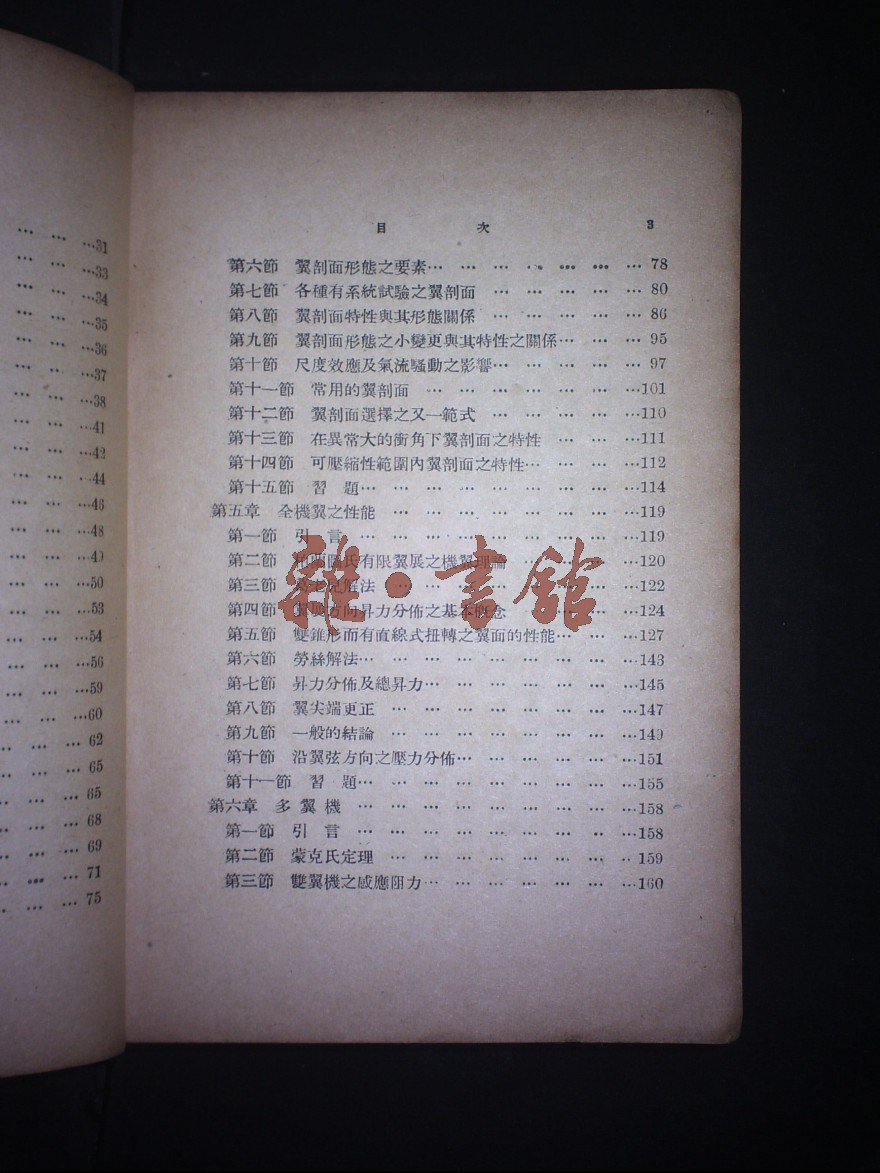 …31
…33
…34
…35
…36
…37
…38
…41
…42
…44
…46
…48
…49
…50
…53
…54
…56
…59
…60
62
65
65
68
69
71
75
目 次 3
第六節 翼剖面形態之要素… … … … … … … 78
第七節 各種有系統試驗之翼剖面 … … … … … 80
第八節 翼剖面特性與其形態關係 … … … … … 86
第九節 翼剖面形態之小變更與其特性之關係… … … 95
第十節 尺度效應及氣流騷動之影響… … … … … 97
第十一節 常用的翼剖面 … … … … … … …101
第十二節 翼剖面選擇之又一範式 … … … … …110
第十三節 在異常大的衝角下翼剖面之特性 … … …111
第十四節 可壓縮性範圍內翼剖面之特性… … … …112
第十五節 習 題… … … … … … … … …114
第五章 全機翼之性能 … … … … … … … …119
第一節 引 言 … … … … … … … … …119
第二節 氏有限翼展之機翼理論 … … … …120
第三節 解法 … … … … … … … …122
第四節 方向昇力分佈之基本概念 … … … …124
第五節 雙錐形而有直線式扭轉之翼面的性能… … …127
第六節 勞絲解法… … … … … … … … …143
第七節 昇力分佈及總昇力… … … … … … …145
第八節 翼尖端更正 … … … … … … … …147
第九節 一般的結論 … … … … … … … …149
第十節 沿翼弦方向之壓力分佈… … … … … …151
第十一節 習 題… … … … … … … … …155
第六章 多 翼 機 … … … … … … … … …158
第一節 引 言 … … … … … … … … …158
第二節 蒙克氏定理 … … … … … … … …159
第三節 雙翼機之感應阻力… … … … … … …160
雜·書館